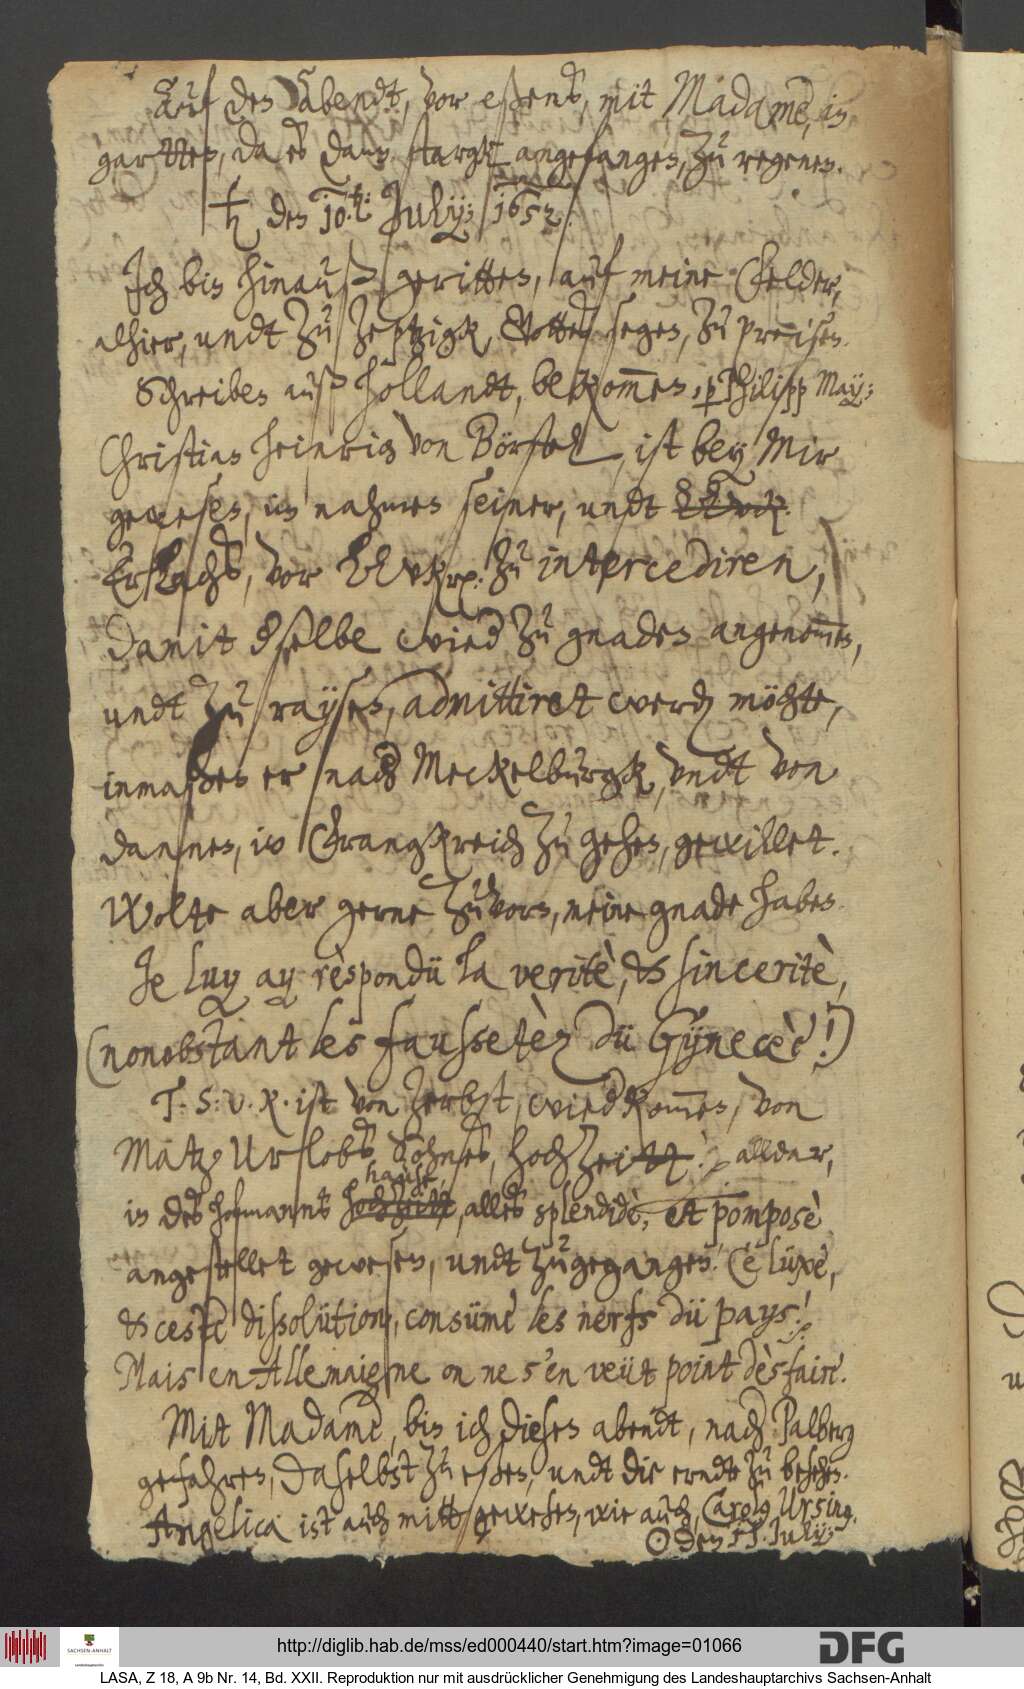 Auf den Abendt, vor eßens, mit Madame, in
gartten, da es dann starck angefangen, zu regenen.
♄ den 10. t: July: 1652.
Ich bin hinauß geritten, auf meine Felder,
alhier, undt zu Zeptzigk, Gottes segen, zu preisen.
Schreiben auß Hollandt, bekom̅en, p Philipp May:
Christian Heinrich von Börstel, ist bey Mir
gewesen, im nahmen seiner, undt
Erlachs, vor zu intercediren,
damit dselbe wied zu gnaden angenom̅en,
undt zu raysen, admittiret werden möchte,
inmaßen er nach Meckelburgk, undt von
dannen, in Franckreich zu gehen, gewillet.
Wolte aber gerne zuvorn, meine gnade haben.
Je luy ay rèspondü la veritè, & sinceritè,
(nonobstant les faussetèz dü Gÿnecèè!)
T. S: v. K. ist von Zerbst, wiedkom̅en, von
Matz Urslobs Sohnes, hochzeitt: alldar,
in des hofmanns hause, alles splendidè, et pomposè
angestellet gewesen, undt zugegangen. Ce lüxe,
& ceste dissolütion, consüme les nerfs dü pays!
Mais en Allemaigne on ne s'en veüt point dèsfaire.
Mit Madame, bin ich diesen abendt, nach Palberg
gefahren, daselbst zu eßen, undt die erndte zu besehen.
Angelica ist auch mitt gewesen, wie auch, Carolg Ursing.
☉ den 11. July:
http://diglib.hab.de/mss/ed000440/start.htm?image=01066
SACHSEN-ANHALT
DFG
LASA, Z 18, A 9b Nr. 14, Bd. XXII. Reproduktion nur mit ausdrücklicher Genehmigung des Landeshauptarchivs Sachsen-Anhalt